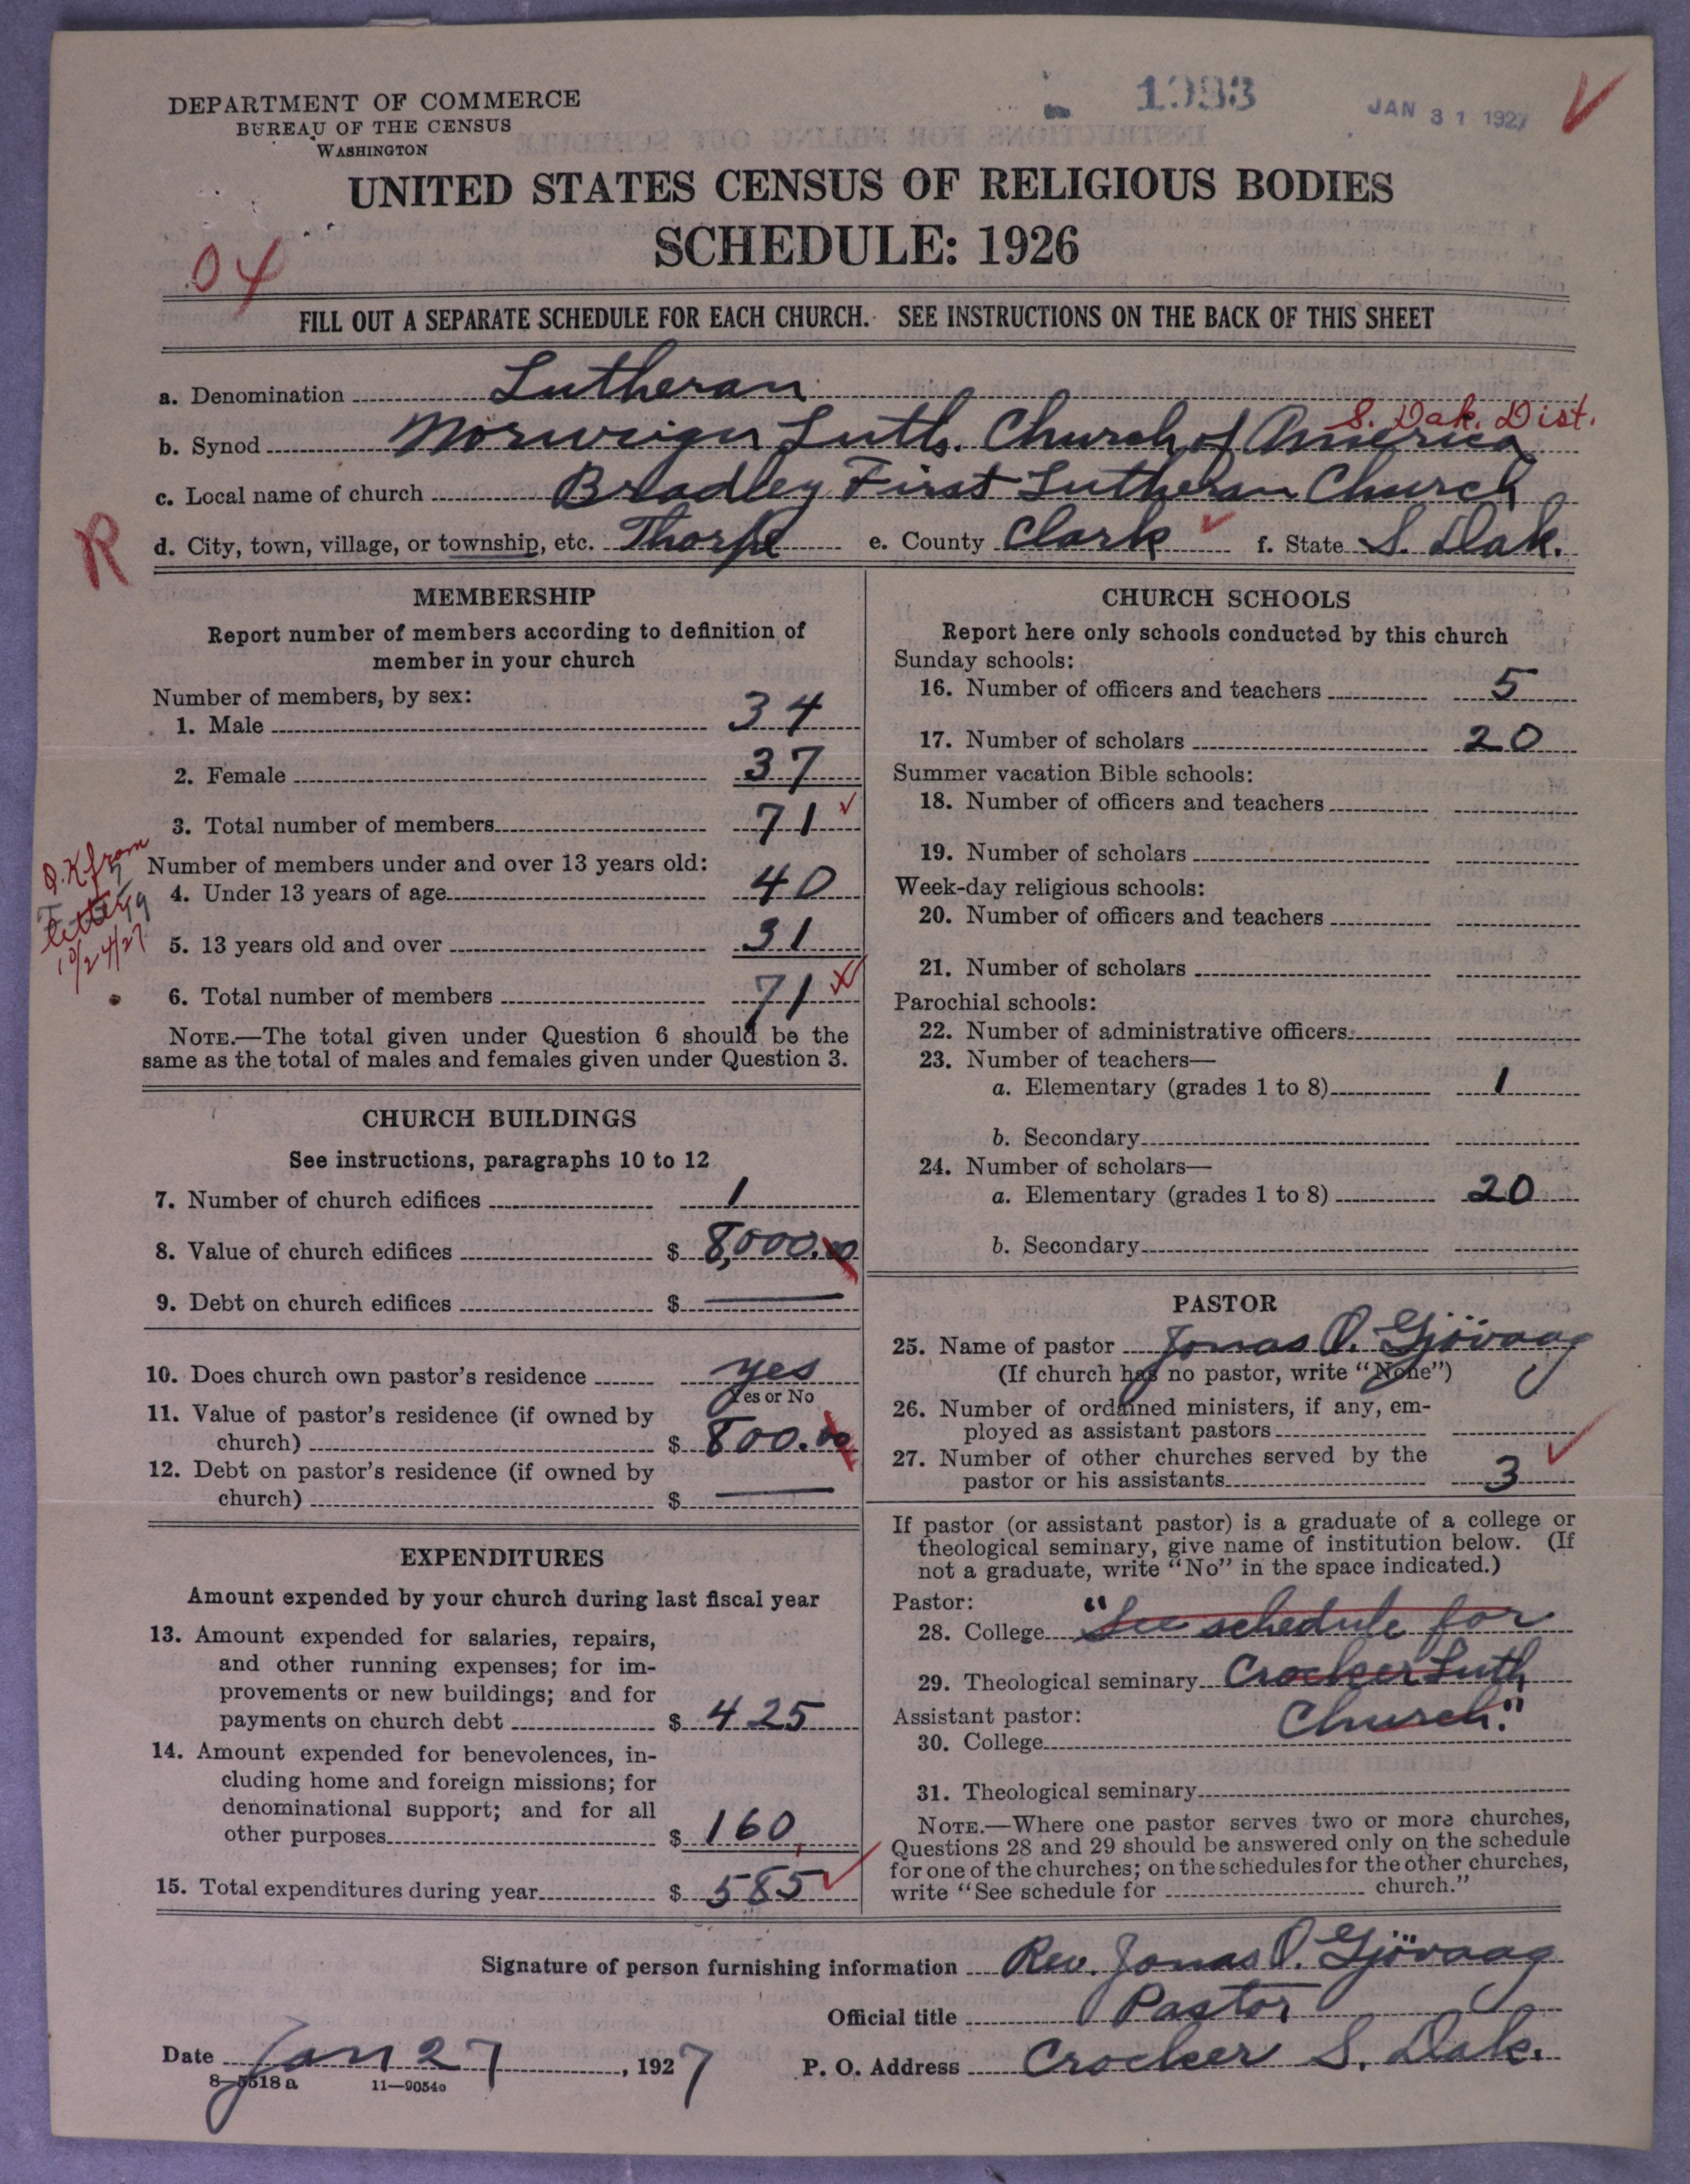 DEPARTMENT OF COMMERCE
BUREAU OF THE CENSUS
WASHINGTON
JAN 31 1927
UNITED STATES CENSUS OF RELIGIOUS BODIES
SCHEDULE: 1926
04
FILL OUT A SEPARATE SCHEDULE FOR EACH CHURCH. SEE INSTRUCTIONS ON THE BACK OF THIS SHEET
a. Denomination Lutheran
S. Dak. Dist.
b. Synod Norweigen Luth. Church of America
c. Local name of church Bradley First Lutheran Church
R
d. City, town, village, or township, etc. Thorp e. County Clark f. State S. Dak.
MEMBERSHIP
Report number of members according to definition of
member in your church
Number of members, by sex:
1. Male 34
2. Female 37
3. Total number of members 71
Number of members under and over 13 years old:
4. Under 13 years of age 40
5. 13 years old and over 31
6. Total number of members 71
O.K from
letter
10/24/27
NOTE.—The total given under Question 6 should be the
same as the total of males and females given under Question 3.
CHURCH BUILDINGS
See instructions, paragraphs 10 to 12
7. Number of church edifices 1
8. Value of church edifices $ 8,000.00
9. Debt on church edifices $ —
10. Does church own pastor's residence yes
Yes or No
11. Value of pastor's residence (if owned by
church) $ 800.00
12. Debt on pastor's residence (if owned by
church) $ —
EXPENDITURES
Amount expended by your church during last fiscal year
13. Amount expended for salaries, repairs,
and other running expenses; for im-
provements or new buildings; and for
payments on church debt $ 425
14. Amount expended for benevolences, in-
cluding home and foreign missions; for
denominational support; and for all
other purposes $ 160
15. Total expenditures during year $ 585
CHURCH SCHOOLS
Report here only schools conducted by this church
Sunday schools:
16. Number of officers and teachers 5
17. Number of scholars 20
Summer vacation Bible schools:
18. Number of officers and teachers
19. Number of scholars
Week-day religious schools:
20. Number of officers and teachers
21. Number of scholars
Parochial schools:
22. Number of administrative officers
23. Number of teachers—
a. Elementary (grades 1 to 8) 1
b. Secondary
24. Number of scholars—
a. Elementary (grades 1 to 8) 20
b. Secondary
PASTOR
25. Name of pastor Jonas O. Gjövaag
(If church has no pastor, write "None")
26. Number of ordained ministers, if any, em-
ployed as assistant pastors
27. Number of other churches served by the
pastor or his assistants 3
If pastor (or assistant pastor) is a graduate of a college or
theological seminary, give name of institution below. (If
not a graduate, write "No" in the space indicated.)
Pastor:
28. College "See schedule for
29. Theological seminary Crocker Luth
Assistant pastor: Church."
30. College
31. Theological seminary
NOTE.—Where one pastor serves two or more churches,
Questions 28 and 29 should be answered only on the schedule
for one of the churches; on the schedules for the other churches,
write "See schedule for church."
Signature of person furnishing information Rev. Jonas O. Gjövaag
Official title Pastor
Date Jan 27, 1927 P. O. Address Crocker S. Dak.
8—5518a 11—9054o